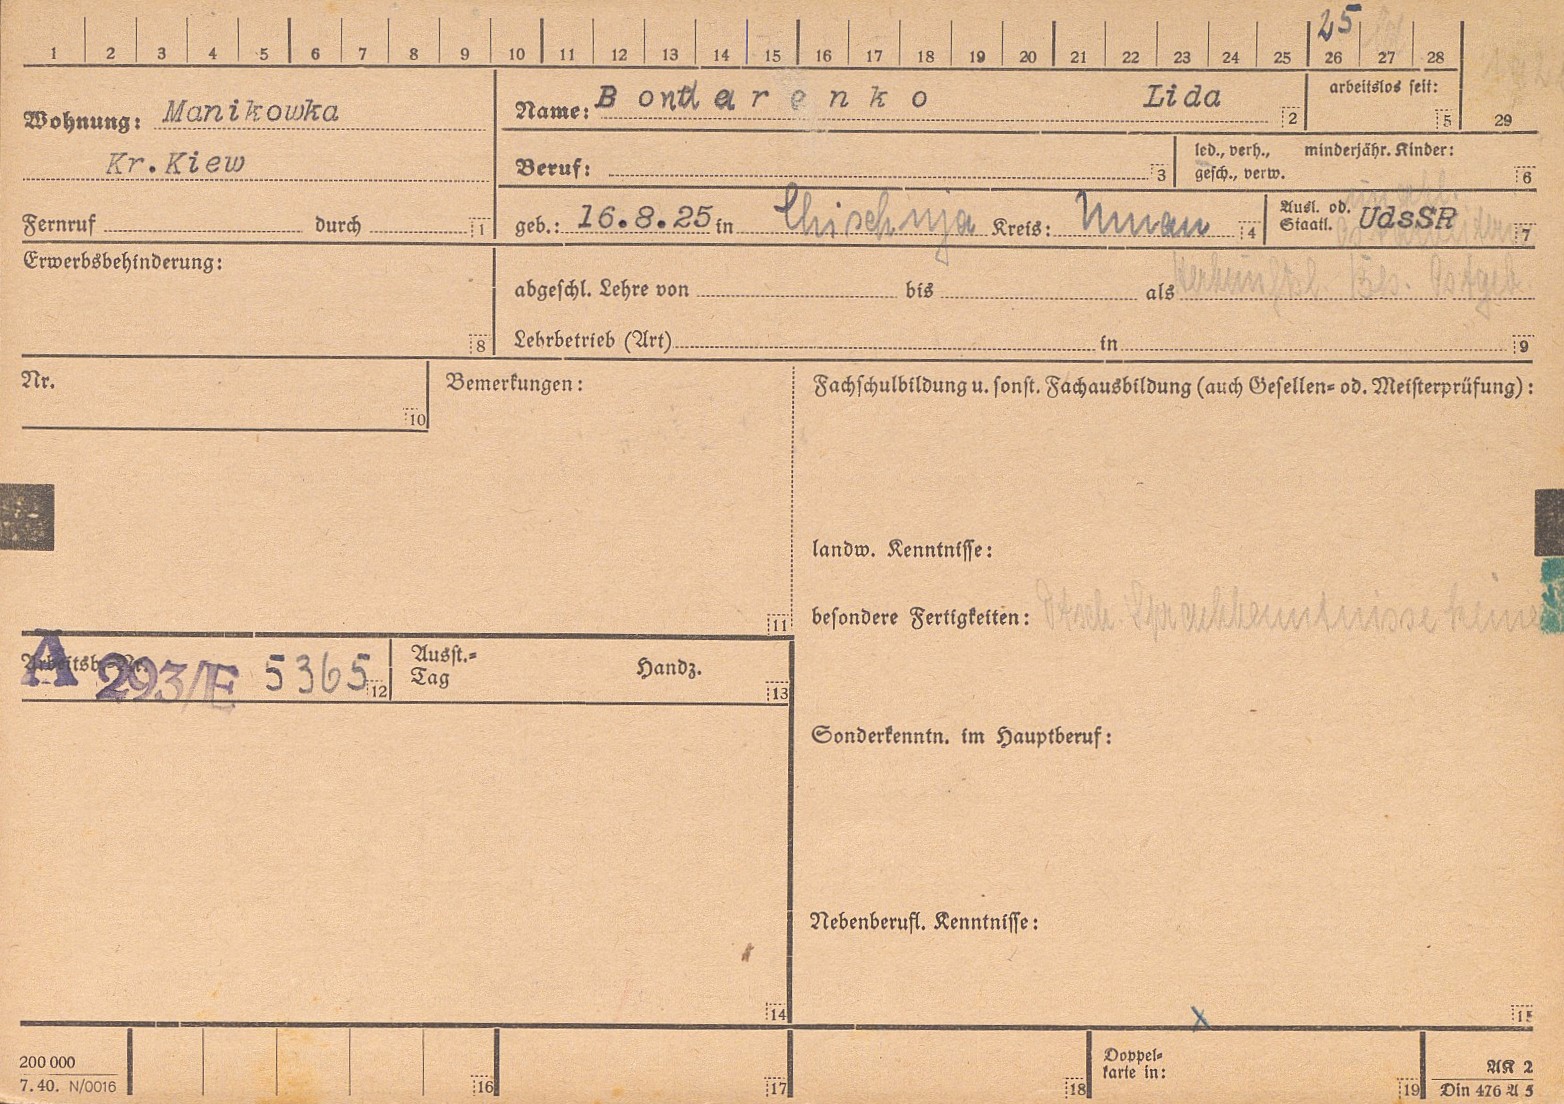 25
1 2 3 4 5 6 7 8 9 10 11 12 13 14 15 16 17 18 19 20 21 22 23 24 25 26 27 28
Wohnung: Manikowka
Kr. Kiew
Name: Bondarenko Lida 2
arbeitslos seit: 5
29
Beruf: 3
led., verh., minderjähr. Kinder:
gesch., verw. 6
Fernruf durch 1
geb.: 16.8.25 in Chischnja Kreis: Uman 4
Ausl. od.
Staatl. UdsSR 7
Erwerbsbehinderung: 8
abgeschl. Lehre von bis als
Lehrbetrieb (Art) in 9
Nr. 10
Bemerkungen: 11
Fachschulbildung u. sonst. Fachausbildung (auch Gesellen- od. Meisterprüfung):
landw. Kenntnisse:
besondere Fertigkeiten: Dtsch. Sprachkenntnisse keine
A 293/E 5365 12
Arbeitsb.-Nr.
Ausst.-
Tag Handz. 13
Sonderkenntn. im Hauptberuf:
Nebenberufl. Kenntnisse:
14
x
15
200 000
7. 40. N/0016
16 17 18
Doppel-
karte in: 19
AK 2
Din 476 A 5